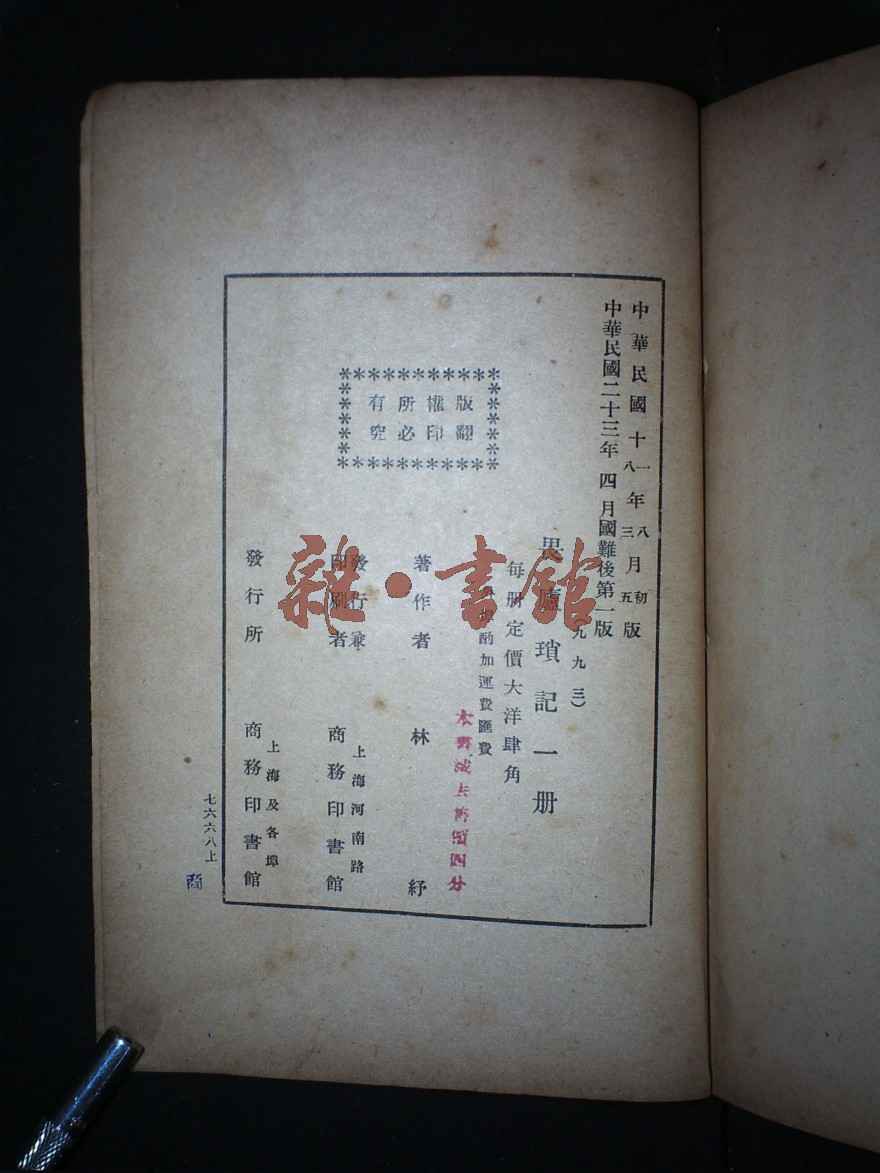 中華民國十一八年八三月初五版
中華民國二十三年四月國難後第一版
(九九三)
畏廬瑣記一册
每册定價大洋肆角
酌加運費匯費
本書減去 四分
版權所有
翻印必究
著作者 林紓
發行兼印刷者 上海河南路 商務印書館
發行所 上海及各埠 商務印書館
七六六八上
雜·書館